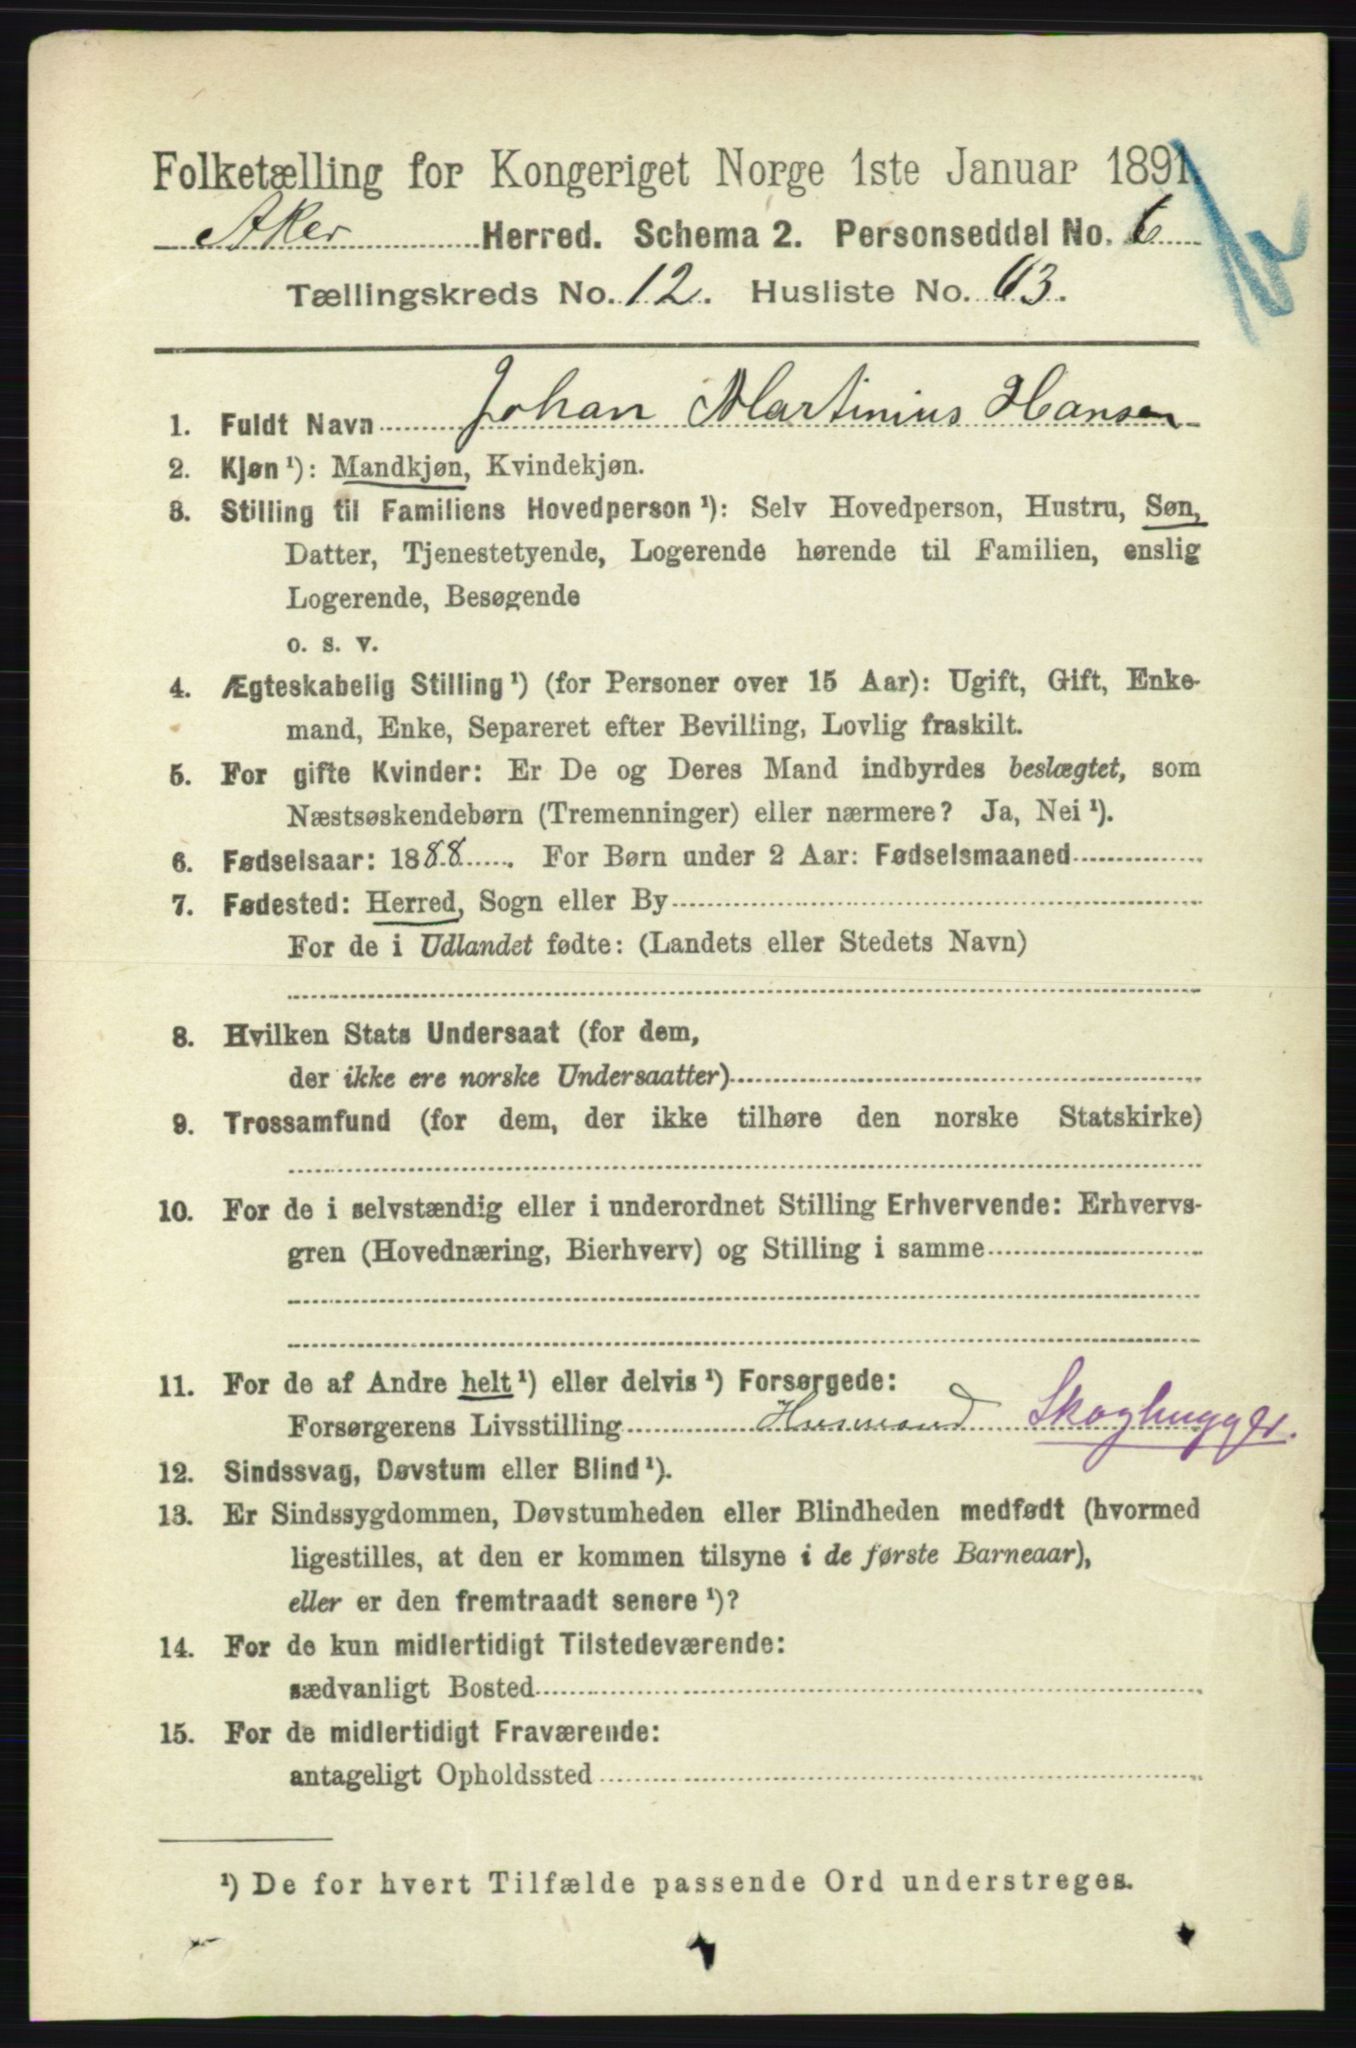 Folketælling for Kongeriget Norge 1ste Januar 1891.
Aker Herred. Schema 2. Personseddel No. 6
Tællingskreds No. 12. Husliste No. 63.
1. Fuldt Navn Johan Martinius Hansen
2. Kjøn ¹): Mandkjøn, Kvindekjøn.
3. Stilling til Familiens Hovedperson ¹): Selv Hovedperson, Hustru, Søn,
Datter, Tjenestetyende, Logerende hørende til Familien, enslig
Logerende, Besøgende
o. s. v.
4. Ægteskabelig Stilling ¹) (for Personer over 15 Aar): Ugift, Gift, Enke-
mand, Enke, Separeret efter Bevilling, Lovlig fraskilt.
5. For gifte Kvinder: Er De og Deres Mand indbyrdes beslægtet, som
Næstsøskendebørn (Tremenninger) eller nærmere? Ja, Nei ¹).
6. Fødselsaar: 1888. For Børn under 2 Aar: Fødselsmaaned
7. Fødested: Herred, Sogn eller By
For de i Udlandet fødte: (Landets eller Stedets Navn)
8. Hvilken Stats Undersaat (for dem,
der ikke ere norske Undersaatter)
9. Trossamfund (for dem, der ikke tilhøre den norske Statskirke)
10. For de i selvstændig eller i underordnet Stilling Erhvervende: Erhvervs-
gren (Hovednæring, Bierhverv) og Stilling i samme
11. For de af Andre helt ¹) eller delvis ¹) Forsørgede:
Forsørgerens Livsstilling Husmand Skoghugger.
12. Sindssvag, Døvstum eller Blind ¹).
13. Er Sindssygdommen, Døvstumheden eller Blindheden medfødt (hvormed
ligestilles, at den er kommen tilsyne i de første Barneaar),
eller er den fremtraadt senere ¹)?
14. For de kun midlertidigt Tilstedeværende:
sædvanligt Bosted
15. For de midlertidigt Fraværende:
antageligt Opholdssted
¹) De for hvert Tilfælde passende Ord understreges.